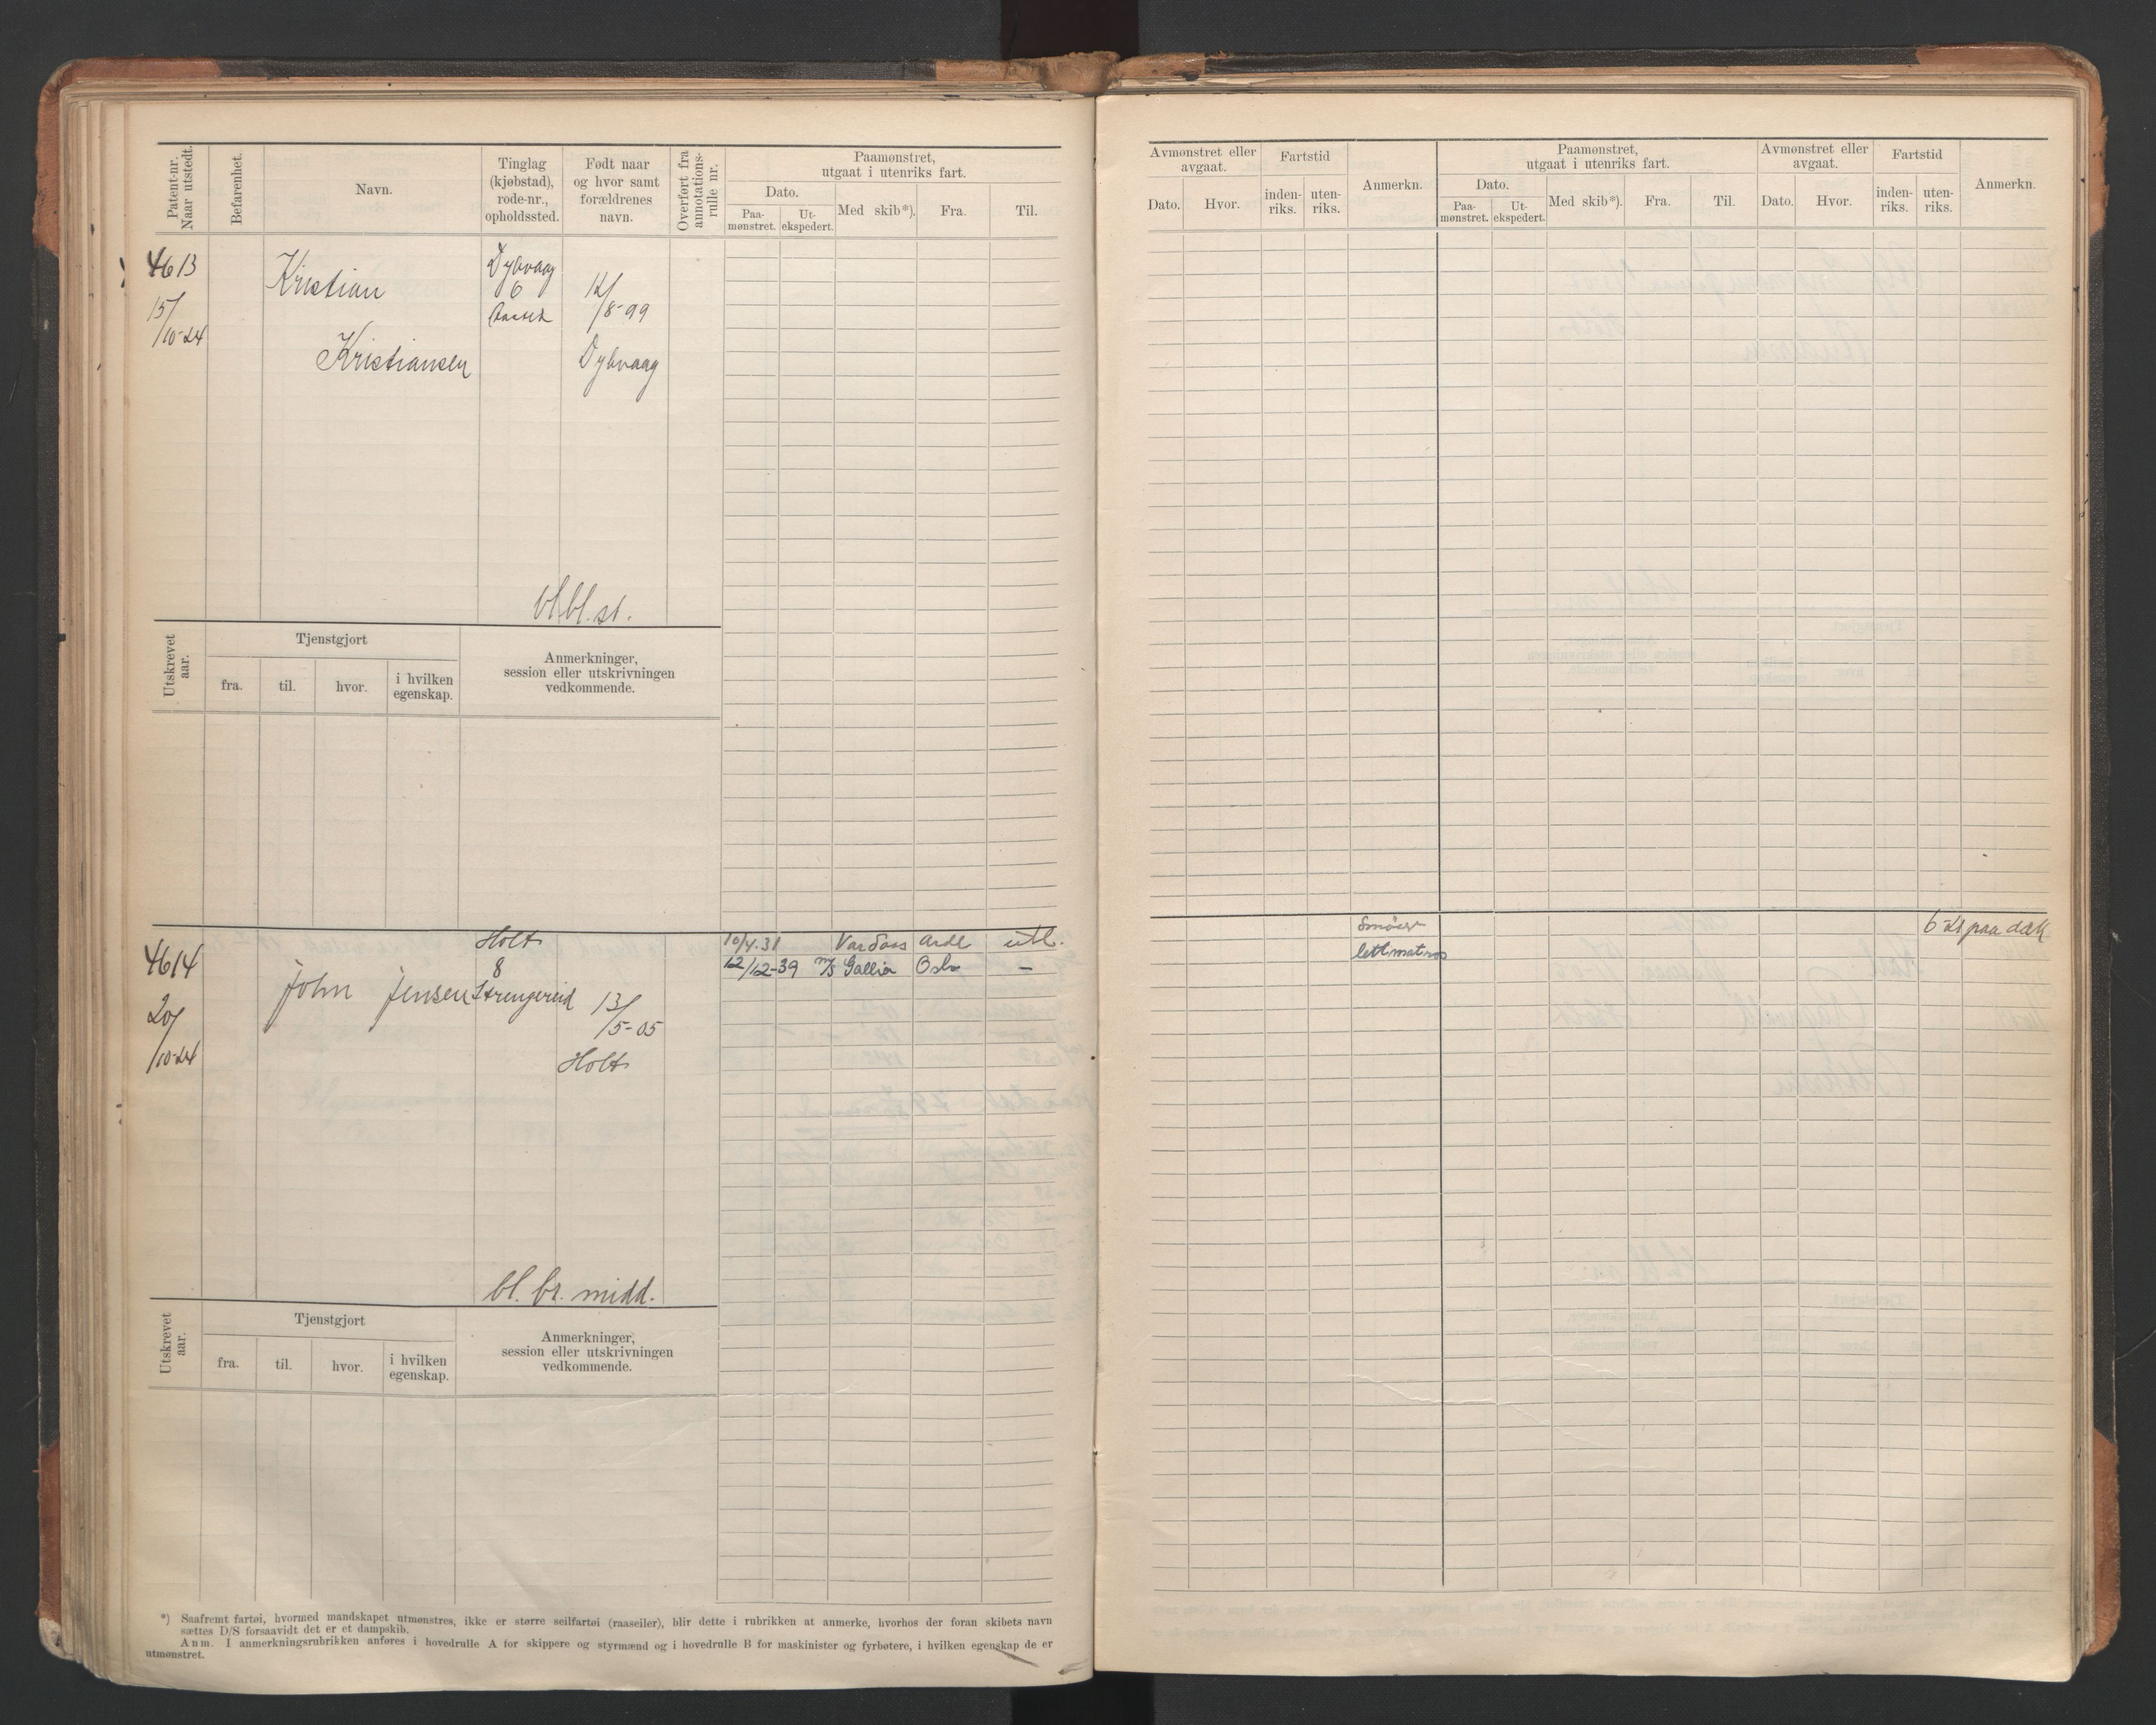 Patent-nr. Naar utstedt.
Befarenhet.
Navn.
Tinglag (kjøbstad), rode-nr., opholdssted.
Født naar og hvor samt forældrenes navn.
Overført fra annotations-rulle nr.
Paamønstret, utgaat i utenriks fart.
Dato.
Paa-mønstret.
Ut-ekspedert.
Med skib*).
Fra.
Til.
Avmønstret eller avgaat.
Dato.
Hvor.
Fartstid
inden-riks.
uten-riks.
Anmerkn.
Paamønstret, utgaat i utenriks fart.
Dato.
Paa-mønstret.
Ut-ekspedert.
Med skib*).
Fra.
Til.
Avmønstret eller avgaat.
Dato.
Hvor.
Fartstid
inden-riks.
uten-riks.
Anmerkn.
4613
15/10-24
Kristian
Kristiansen
Dybvaag
6
12/8-99
Dybvaag
bl. bl. st.
Utskrevet aar.
Tjenstgjort
fra.
til.
hvor.
i hvilken egenskap.
Anmerkninger, session eller utskrivningen vedkommende.
4614
20/10-24
John Jensen
Holt
8
Strengereid
13/5-05
Holt
10/4.31 Vardaas Ardl utl.
Smører
6-21 paa dæk
12/12-39 M/S Gallia Oslo —
lettmatros
bl. br. midd.
Utskrevet aar.
Tjenstgjort
fra.
til.
hvor.
i hvilken egenskap.
Anmerkninger, session eller utskrivningen vedkommende.
*) Saafremt fartøi, hvormed mandskapet utmønstres, ikke er større seilfartøi (raaseiler), blir dette i rubrikken at anmerke, hvorhos der foran skibets navn
sættes D/S forsaavidt det er et dampskib.
Anm. I anmerkningsrubrikken anføres i hovedrulle A for skippere og styrmænd og i hovedrulle B for maskinister og fyrbøtere, i hvilken egenskap de er
utmønstret.